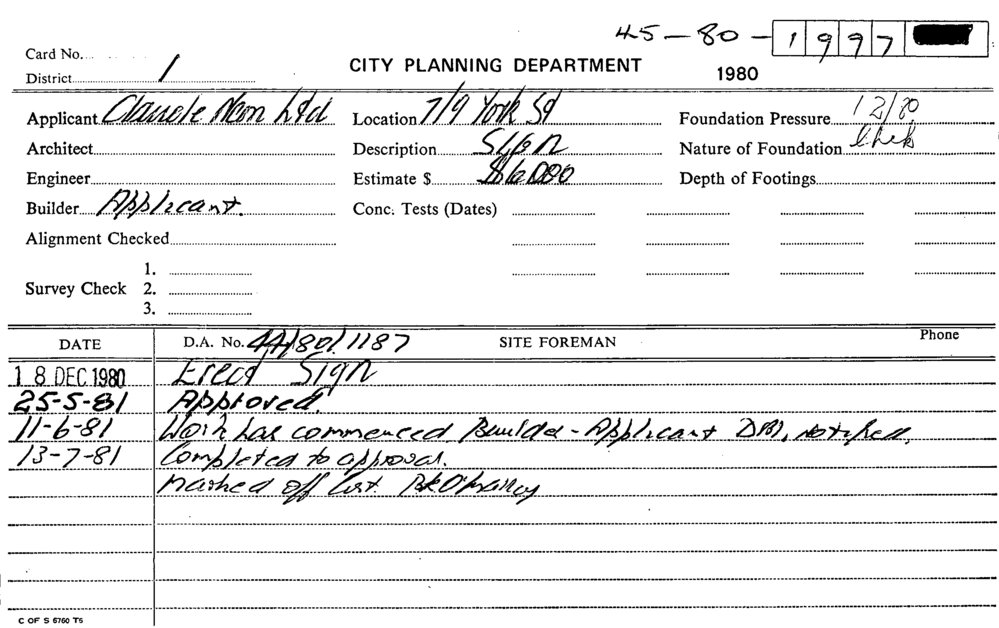 45-80-1997
Card No.
District 1
CITY PLANNING DEPARTMENT
1980
Applicant Claude Neon Ltd
Location 7/9 York St
Foundation Pressure 12/80
Architect
Description Sign
Nature of Foundation
Engineer
Estimate $ $6000
Depth of Footings
Builder Applicant.
Conc. Tests (Dates)
Alignment Checked
Survey Check 1.
2.
3.
DATE D.A. No. 44/80/1187 SITE FOREMAN Phone
18 DEC 1980 Erect Sign
25-5-81 Approved.
11-6-81 Work has commenced Builder - Applicant notified.
13-7-81 Completed to approval.
Marked off List.
C OF S 6760 T5